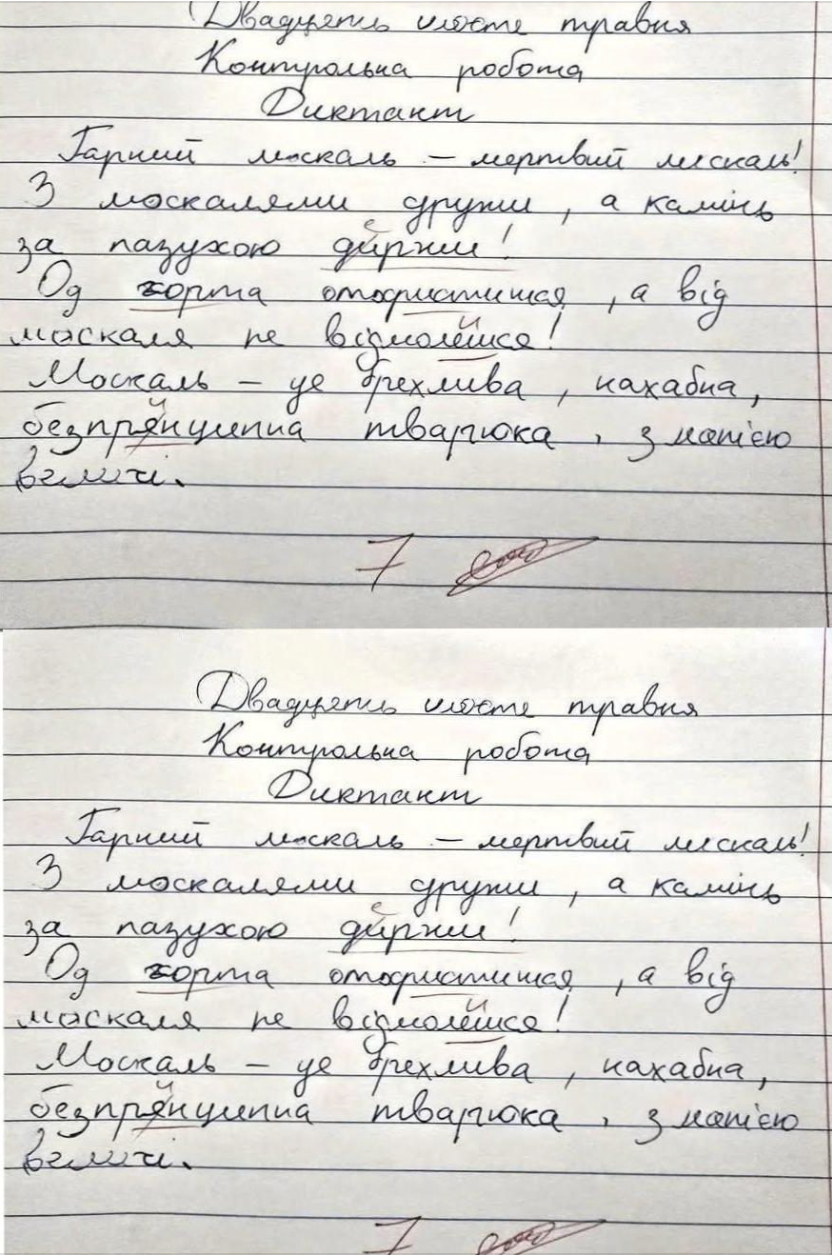 Двадцять шосте травня
Контрольна робота
Диктант
Гарний москаль – мертвий москаль!
З москалями дружи, а камінь
за пазухою держи!
Од чорта отхристишся, а від
москаля не відмолишся!
Москаль – це брехлива, нахабна,
безпринципна тварюка, з манією
величі.
7
Двадцять шосте травня
Контрольна робота
Диктант
Гарний москаль – мертвий москаль!
З москалями дружи, а камінь
за пазухою держи!
Од чорта отхристишся, а від
москаля не відмолишся!
Москаль – це брехлива, нахабна,
безпринципна тварюка, з манією
величі.
7